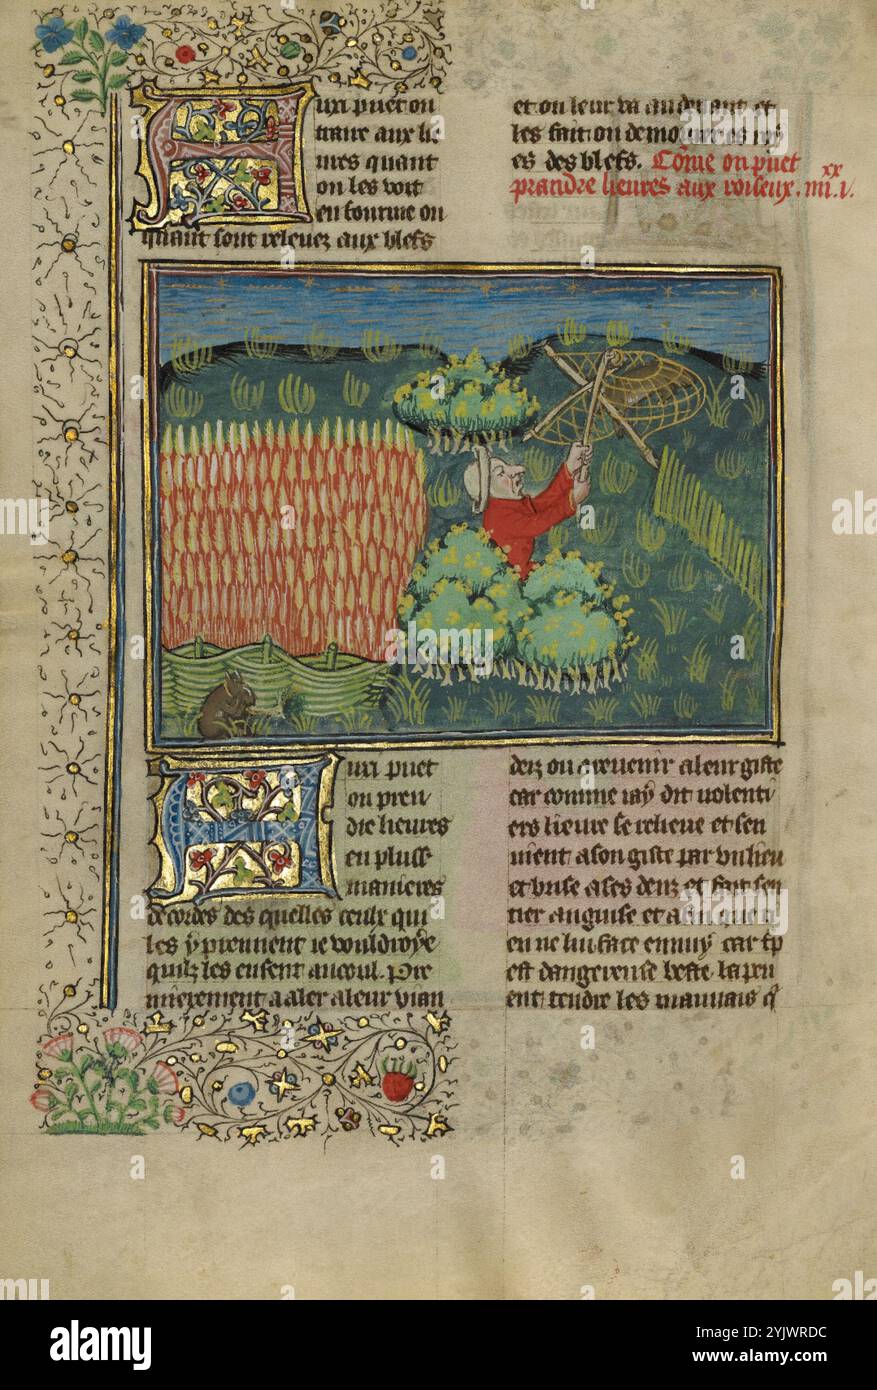 Aux puet on
traire aux lie
ures quant
on les voit
en fourme ou
quant sont releuez aux blefs
et on leur va au deuant et
les fait on demourer es
es des blefs. Cōme on puet
prandre lieures aux . iiii.xx v.
Aux puet
on pren
dre lieures
en plusrs
manieres
de cordes des quelles ceulx qui
les y prennent ie vouldroye
quilz les eusent au coul. Pre
mierement a aler a leur vian
derz ou a reuenir a leur giste
car comme iay dit volenti
ers lieure se relieue et sen
vient a son giste par vn lieu
et brise a ses denz et fait sen
tier a guise et a fin que
en ne lui face ennuy car
est dangereuse beste. la peu
ent tendre les mauuais q
alamy
Image ID: 2YJWRDC
www.alamy.com